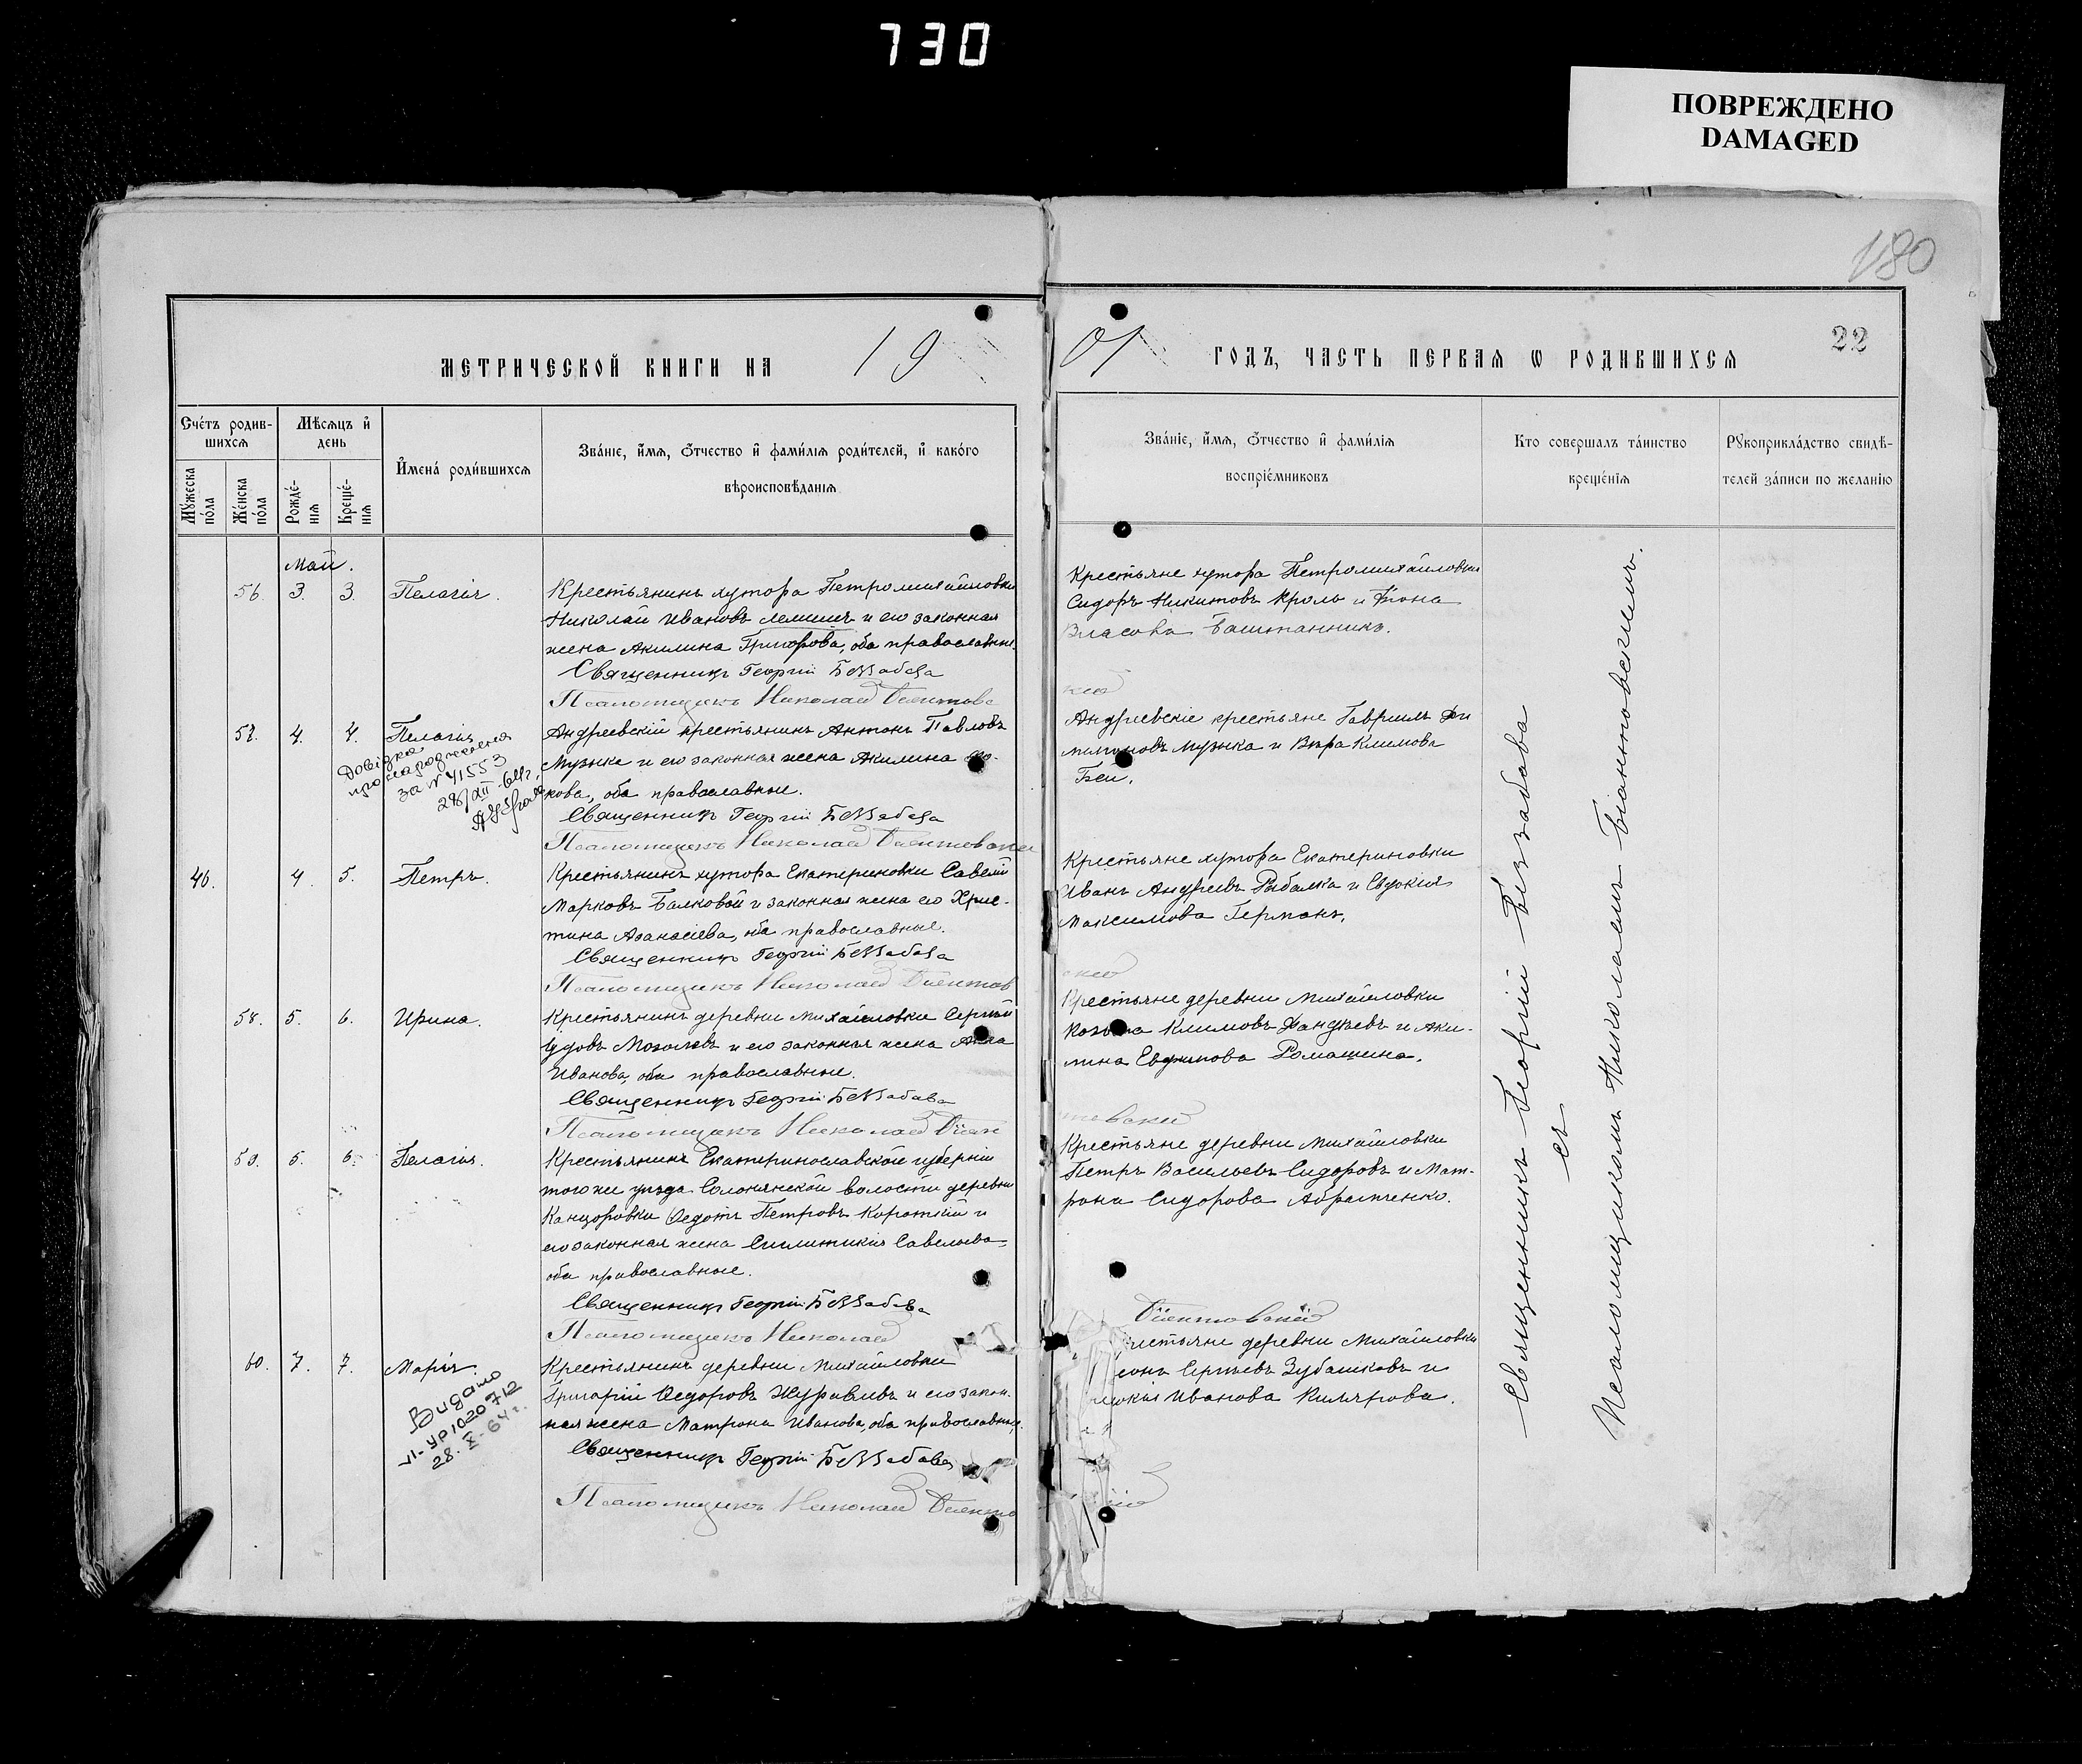 730
ПОВРЕЖДЕНО
DAMAGED
180
22
МЕТРИЧЕСКОЙ КНИГИ НА 19
01 ГОДЪ, ЧАСТЬ ПЕРВАЯ Ѡ РОДИВШИХСЯ
Счетъ родив-
шихся
Мѣсяцъ и
день
Имена родившихся
Званіе, имя, отчество и фамилія родителей, и какого
вѣроисповѣданія
Мужеска
пола
Женска
пола
Рожде-
нія
Креще-
нія
Званіе, имя, отчество и фамилія
воспріемниковъ
Кто совершалъ таинство
крещенія
Рукоприкладство свидѣ-
телей записи по желанію
Май.
56. 3. 3. Пелагія.
Крестьянинъ хутора Петромихайловки
Николай Ивановъ и его законная
жена Акилина Григорова, оба православные.
Священникъ Георгій Беззабава
Псаломщикъ Николай
Крестьяне хутора Петромихайловки
Сидоръ Никитовъ Кроль и
Власова Баштанникъ.
57. 4. 4. Пелагія
Довідка
про народження
за № 41553
28/XII-64г.
Андреевскій крестьянинъ Антонъ Павловъ
Музыка и его законная жена Акилина
кова, оба православные.
Священникъ Георгій Беззабава
Псаломщикъ Николай
Андреевскіе крестьяне Гавриилъ
Музыка и Вѣра Климова
Бей.
46. 4. 5. Петръ.
Крестьянинъ хутора Екатериновки Савелій
Марковъ Балковой и законная жена его Хрис-
тина Аѳанасіева, оба православные.
Священникъ Георгій Беззабава
Псаломщикъ Николай
Крестьяне хутора Екатериновки
Иванъ Андреевъ Рыбалка и Евдокія
Максимова Германъ.
58. 5. 6. Ирина.
Крестьянинъ деревни Михайловки Сергѣй
и его законная жена Анна
Иванова, оба православные.
Священникъ Георгій Беззабава
Псаломщикъ Николай
Крестьяне деревни Михайловки
Козьма Климовъ и Аки-
лина Ромашина.
59. 5. 6. Пелагія.
Крестьянинъ Екатеринославской губерніи
того же уѣзда Солонянской волости деревни
Канцеровки Ѳедотъ Петровъ Короткій и
его законная жена Савельева,
оба православные.
Священникъ Георгій Беззабава
Псаломщикъ Николай
Крестьяне деревни Михайловки
Петръ Васильевъ Сидоровъ и Мат-
рона Сидорова Абраменко.
60. 7. 7. Марія.
Видано
28.X-64г.
Крестьянинъ деревни Михайловки
Григорій Ѳедоровъ Журавлевъ и его закон-
ная жена Матрона Иванова, оба православные.
Священникъ Георгій Беззабава
Псаломщикъ Николай
деревни Михайловки
Сергѣевъ Зубашковъ и
Иванова
Священникъ Георгій Беззабава
съ
Псаломщикомъ Николаемъ